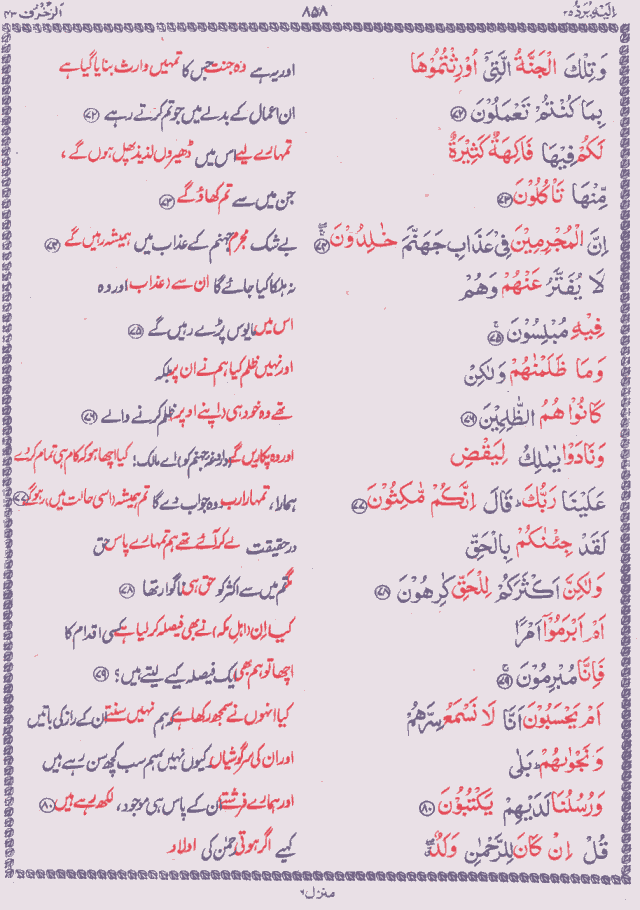 اِلَیْهِ یُرَدُّ ۲۵
۸۵۸
اَلزُّخْرُف ۴۳
وَتِلْكَ الْجَنَّةُ الَّتِيْٓ اُوْرِثْتُمُوْهَا
بِمَا كُنْتُمْ تَعْمَلُوْنَ ۷۲
لَكُمْ فِيْهَا فَاكِهَةٌ كَثِيْرَةٌ
مِّنْهَا تَاْكُلُوْنَ ۷۳
اِنَّ الْمُجْرِمِيْنَ فِيْ عَذَابِ جَهَنَّمَ خٰلِدُوْنَ ۷۴
لَا يُفَتَّرُ عَنْهُمْ وَهُمْ
فِيْهِ مُبْلِسُوْنَ ۷۵
وَمَا ظَلَمْنٰهُمْ وَلٰكِنْ
كَانُوْا هُمُ الظّٰلِمِيْنَ ۷۶
وَنَادَوْا يٰمٰلِكُ لِيَقْضِ
عَلَيْنَا رَبُّكَ ؕ قَالَ اِنَّكُمْ مّٰكِثُوْنَ ۷۷
لَقَدْ جِئْنٰكُمْ بِالْحَقِّ
وَلٰكِنَّ اَكْثَرَكُمْ لِلْحَقِّ كٰرِهُوْنَ ۷۸
اَمْ اَبْرَمُوْٓا اَمْرًا
فَاِنَّا مُبْرِمُوْنَ ۷۹
اَمْ يَحْسَبُوْنَ اَنَّا لَا نَسْمَعُ سِرَّهُمْ
وَنَجْوٰىهُمْ ؕ بَلٰى
وَرُسُلُنَا لَدَيْهِمْ يَكْتُبُوْنَ ۸۰
قُلْ اِنْ كَانَ لِلرَّحْمٰنِ وَلَدٌ
اور یہ ہے وہ جنت جس کا تمہیں وارث بنایا گیا ہے
ان اعمال کے بدلے میں جو تم کرتے رہے ۷۲
تمہارے لیے اس میں ڈھیروں لذیذ پھل ہوں گے ،
جن میں سے تم کھاؤ گے ۷۳
بے شک مجرم جہنم کے عذاب میں ہمیشہ رہیں گے ۷۴
نہ ہلکا کیا جائے گا ان سے (عذاب) اور وہ
اس میں مایوس پڑے رہیں گے ۷۵
اور نہیں ظلم کیا ہم نے ان پر بلکہ
تھے وہ خود ہی (اپنے اوپر) ظلم کرنے والے ۷۶
اور وہ پکاریں گے (داروغہ جہنم کو) اے مالک! کیا اچھا ہو کہ کام ہی تمام کر دے
ہمارا، تمہارا رب وہ جواب دے گا تم ہمیشہ (اسی حالت میں) رہو گے ۷۷
درحقیقت لے کر آئے تھے ہم تمہارے پاس حق
مگر تم میں سے اکثر کو حق ہی ناگوار تھا ۷۸
کیا ان (اہل مکہ) نے بھی فیصلہ کر لیا ہے کسی اقدام کا
اچھا تو ہم بھی ایک فیصلہ کیے لیتے ہیں؟ ۷۹
کیا انہوں نے سمجھ رکھا ہے کہ ہم نہیں سنتے ان کے راز کی باتیں
اور ان کی سرگوشیاں کیوں نہیں ہم سب کچھ سن رہے ہیں
اور ہمارے فرشتے ان کے پاس ہی موجود، لکھ رہے ہیں ۸۰
کہیے اگر ہوتی رحمٰن کی اولاد
منزل ۶